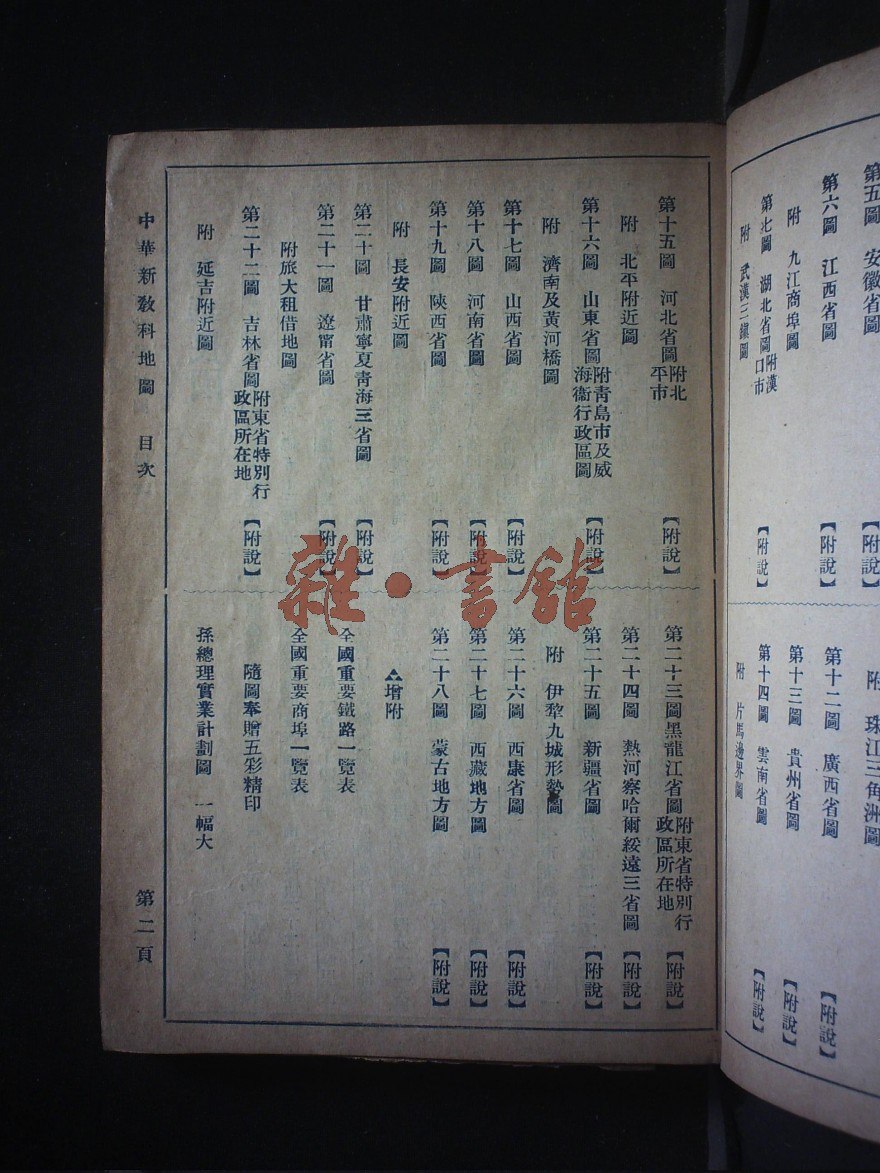 第五圖　安徽省圖
第六圖　江西省圖【附說】
附　九江商埠圖
第七圖　湖北省圖附漢口市【附說】
附　武漢三鎮圖
附　珠江三角洲圖
第十二圖　廣西省圖【附說】
第十三圖　貴州省圖【附說】
第十四圖　雲南省圖【附說】
附　片馬邊界圖
第十五圖　河北省圖附北平市【附說】
附　北平附近圖
第十六圖　山東省圖附青島市及威海衞行政區圖【附說】
附　濟南及黃河橋圖
第十七圖　山西省圖【附說】
第十八圖　河南省圖【附說】
第十九圖　陝西省圖【附說】
附　長安附近圖
第二十圖　甘肅寧夏靑海三省圖【附說】
第二十一圖　遼甯省圖【附說】
附旅大租借地圖
第二十二圖　吉林省圖附東省特別行政區所在地【附說】
附　延吉附近圖
第二十三圖黑龍江省圖附東省特別行政區所在地【附說】
第二十四圖　熱河察哈爾綏遠三省圖【附說】
第二十五圖　新疆省圖【附說】
附　伊犂九城形勢圖
第二十六圖　西康省圖【附說】
第二十七圖　西藏地方圖【附說】
第二十八圖　蒙古地方圖【附說】
增附
全國重要鐵路一覽表
全國重要商埠一覽表
隨圖奉贈五彩精印
孫總理實業計劃圖　一幅大
中華新敎科地圖　目次　第二頁
雜·書館